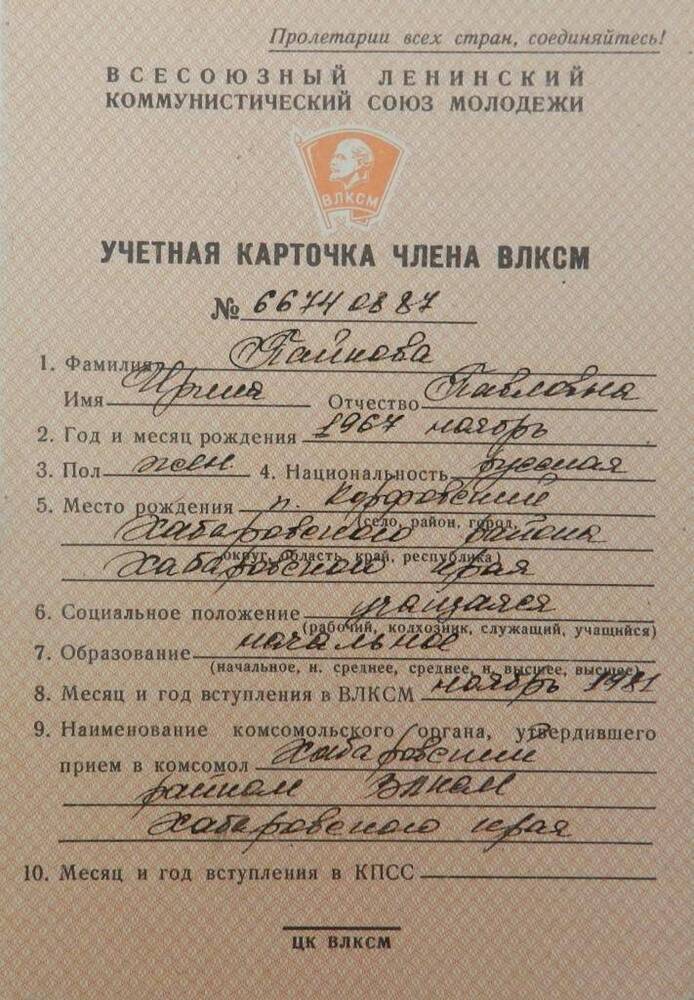 Пролетарии всех стран, соединяйтесь!
ВСЕСОЮЗНЫЙ ЛЕНИНСКИЙ
КОММУНИСТИЧЕСКИЙ СОЮЗ МОЛОДЕЖИ
ВЛКСМ
УЧЕТНАЯ КАРТОЧКА ЧЛЕНА ВЛКСМ
№ 66740887
1. Фамилия Пайкова
Имя Ирина Отчество Павловна
2. Год и месяц рождения 1967 ноябрь
3. Пол жен 4. Национальность русская
5. Место рождения п. Корфовский
(село, район, город,
Хабаровского района
округ, область, край, республика)
Хабаровского края
6. Социальное положение учащаяся
(рабочий, колхозник, служащий, учащийся)
7. Образование начальное
(начальное, н. среднее, среднее, н. высшее, высшее)
8. Месяц и год вступления в ВЛКСМ ноябрь 1981
9. Наименование комсомольского органа, утвердившего
прием в комсомол Хабаровский
райком ВЛКСМ
Хабаровского края
10. Месяц и год вступления в КПСС
ЦК ВЛКСМ